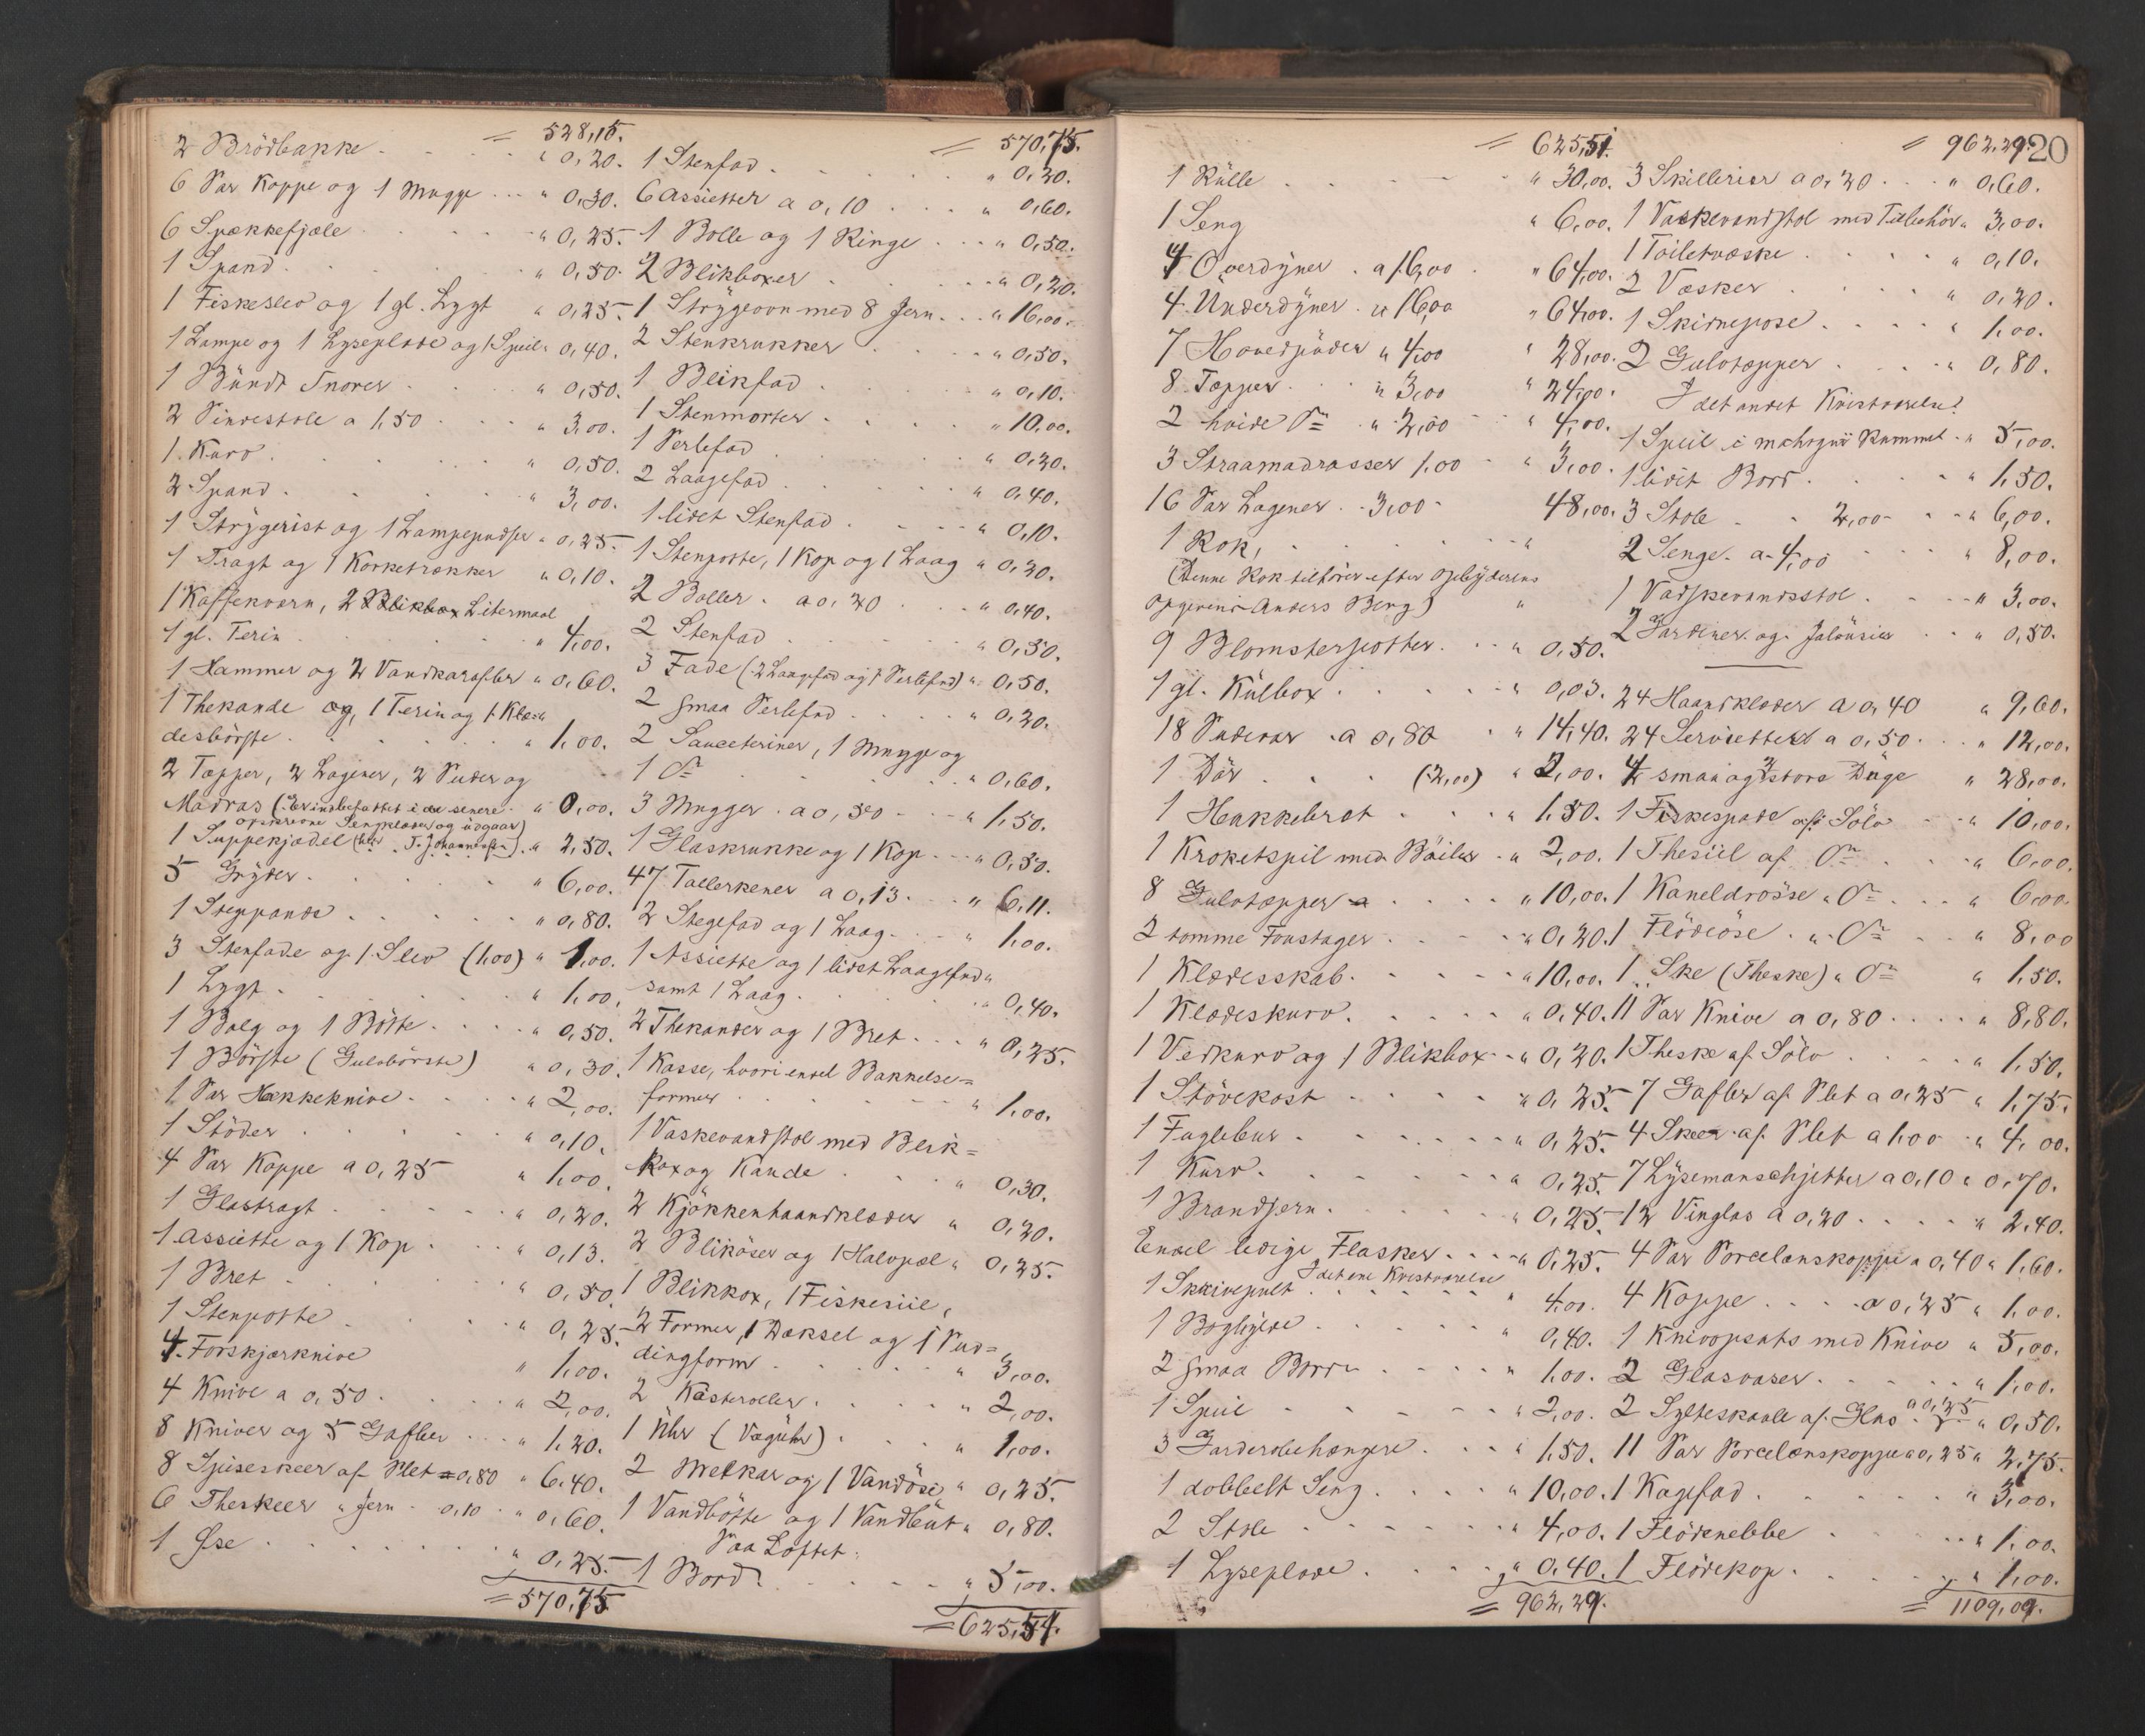 = 528,15.
2 Brödbakke . . . " 0,20.
6 Par Koppe og 1 Mugge . . . " 0,30.
6 Spækkefjæle . . . " 0,25.
1 Spand . . . " 0,50.
1 Fiskeslev og 1 gl. Lygt " 0,25.
1 Lampe og 1 Lyseplade og 1 Speil " 0,40.
1 Bündt Snorer . . . " 0,50.
2 Pindestole a 1,50 . . . " 3,00.
1 Kurv . . . " 0,50.
2 Spand . . . " 3,00.
1 Strygerist og 1 Lampepudser " 0,25.
1 Tragt og 1 Korketrækker " 0,10.
1 Kaffekværn, 2 Litermaal
1 gl. Terin . . . " 4,00.
1 Hammer og 2 Vandkarafler " 0,60.
1 Thekande og 1 Terin og 1 Klæ-
desbörste . . . " 1,00.
2 Tæpper, 2 Lagener, 2 Puder og
Madras (Er indbefattet i de senere " 0,00.
opskrevne Sengklæder og udgaar)
1 Suppekjedel . . . " 2,50.
5 Gryder . . . " 6,00.
1 Stegpande . . . " 0,80.
3 Stenfade og 1 Slev (1,00) " 1,00.
1 Lygt . . . " 1,00.
1 Balg og 1 Bötte . . . " 0,50.
1 Börste (Gulvbörste) " 0,30.
1 Par Hakkeknive . . . " 2,00.
1 Stöder . . . " 0,10.
4 Par Koppe a 0,25 " 1,00.
1 Glastragt . . . " 0,20.
1 Assiette og 1 Kop . . . " 0,13.
1 Bret . . . " 0,50.
1 Stenpotte . . . " 0,25.
4 Forskjærknive " 1,00.
4 Knive a 0,50 . . . " 2,00.
8 Kniver og 5 Gafler . . . " 1,20.
8 Spiseskeer af Plet a 0,80 " 6,40.
6 Theskeer " Jern - 0,10 " 0,60.
1 Øse . . . " 0,25.
= 570,75.
= 570,75.
1 Stenfad . . . " 0,20.
6 Assietter a 0,10 . . . " 0,60.
1 Bolle og 1 Ringe . . . " 0,50.
2 Blikboxer . . . " 0,20.
1 Strygeovn med 8 Jern . . . " 16,00.
2 Stenkrukker . . . " 0,50.
1 Blikfad . . . " 0,10.
1 Stenmorter . . . " 10,00.
1 Perlefad . . . " 0,20.
2 Laagefad . . . " 0,40.
1 lidet Stenfad . . . " 0,10.
1 Stenpotte, 1 Kop og 1 Laag " 0,20.
2 Boller . a 0,20 . . . " 0,40.
2 Stenfad . . . " 0,30.
3 Fade (2 Laagefad og 1 Perlefad) " 0,50.
2 smaa Perlefad . . . " 0,20.
2 Sauceteriner, 1 Mugge og
1 Do . . . " 0,60.
3 Mugger . a 0,50 . . . " 1,50.
1 Glaskrukke og 1 Kop . . . " 0,30.
47 Tallerkener a 0,13 . . . " 6,11.
2 Stegefad og 1 Laag . . . " 1,00.
1 Assiette og 1 lidet Laagefad
samt 1 Laag . . . " 0,40.
2 Thekander og 1 Bret . . . " 0,25.
1 Kasse, hvori endel Bakkelse=
former . . . " 1,00.
1 Vaskevandstol med Blik=
box og Kande . . . " 0,30.
2 Kjökkenhaandklæder " 0,20.
2 Bliköser og 1 Halvpæl " 0,25.
1 Blikbox, 1 Fiskesiil,
2 Former, 1 Dæksel og 1 Pud=
dingform . . . " 3,00.
2 Kasteroller . . . " 2,00.
1 Uhr (Vægühr) . . . " 1,00.
2 Melkar og 1 Vandöse " 0,25.
1 Vandbötte og 1 Vandbüt " 0,80.
Paa Loftet:
1 Bord . . . " 5,00.
= 625,51.
20
= 625,51.
1 Külle . . . " 30,00.
1 Seng " 6,00.
4 Overdyner . a 16,00 . " 64,00.
4 Ünderdyner " 16,00 " 64,00.
7 Hovedpuder " 4,00 " 28,00.
8 Tæpper . . " 3,00 " 24,00.
2 hvide Do " 2,00 " 4,00.
3 Straamadrasser 1,00 " 3,00.
16 Par Lagener . 3,00 - 48,00.
1 Rok, . . . "
(Denne Rok tilhörer efter Opbyderens
Opgivende Anders Berg) "
9 Blomsterpotter . . . " 0,50.
1 gl. Külbox . . . " 0,03.
18 Pudevar . a 0,80 " 14,40.
1 Dör . . . (2,00) " 2,00.
1 Hakkebret . . . " 1,50.
1 Kroketspil med Böiler " 2,00.
8 Gulvtæpper . . . " 10,00.
2 tomme Foustager . . . " 0,20.
1 Klædesskab . . . " 10,00.
1 Klædeskurv . . . " 0,40.
1 Vedkurv og 1 Blikbox " 0,20.
1 Stövekost . . . " 0,25.
1 Fuglebur . . . " 0,25.
1 Kurv . . . " 0,25.
1 Brandjern . . . " 0,25.
Endel ledige Flasker . . . " 0,25.
I det ene Kvistværelse
1 Skrivepult . . . " 4,00.
1 Boghylde . . . " 0,40.
2 smaa Borde . . . " 1,00.
1 Speil . . . " 2,00.
3 Garderobehængere . . . " 1,50.
1 dobbelt Seng . . . " 10,00.
2 Stole . . . " 4,00.
1 Lyseplade . . . " 0,40.
= 962,29.
= 962,29.
3 Skillerier a 0,20 . . . " 0,60.
1 Vaskevandstol med Tilbehör " 3,00.
1 Toiletvæske . . . " 0,10.
2 Vasker . . . " 0,20.
1 Skindpose . . . " 1,00.
2 Gulvtæpper . . . " 0,80.
I det andet Kvistværelse:
1 Speil i mahogni Rammel " 5,00.
1 lidet Bord . . . " 1,50.
3 Stole - " 2,00 - " 6,00.
2 Senge a 4,00 . . . " 8,00.
1 Vadskevandsstol . . . " 3,00.
2 Gardiner og Jalousier . . " 0,50.
24 Haandklæder a 0,40 " 9,60.
24 Servietter a 0,50 . . . " 12,00.
4 smaa og 2 store Düge " 28,00.
1 Fiskespade af Sölv . . " 10,00.
1 Thesiil af Do . . . " 6,00.
1 Kaneldösse " Do . . . " 6,00.
1 Flödeöse . " Do . . " 8,00
1 Ske (Theske) " Do " 1,50.
11 Par Knive a 0,80 . . . " 8,80.
1 Theske af Sölv . . . " 1,50.
7 Gafler af Plet a 0,25 " 1,75.
4 Skeer af Plet a 1,00 " 4,00.
7 Lysemanschjetter a 0,10 " 0,70.
12 Vinglas a 0,20 . . . " 2,40.
4 Par Porcelænskoppe a 0,40 " 1,60.
4 Koppe . . . a 0,25 " 1,00.
1 Knivopsats med Knive " 5,00.
2 Glasvaser . . . " 1,00.
2 Sylteskaale af Glas a 0,25 " 0,50.
11 Par Porcelænskoppe a 0,25 " 2,75.
1 Kagefad . . . " 3,00.
1 Flödenebbe . . . " 1,00.
1 Flödekop . . . " 1,00.
= 1109,09.